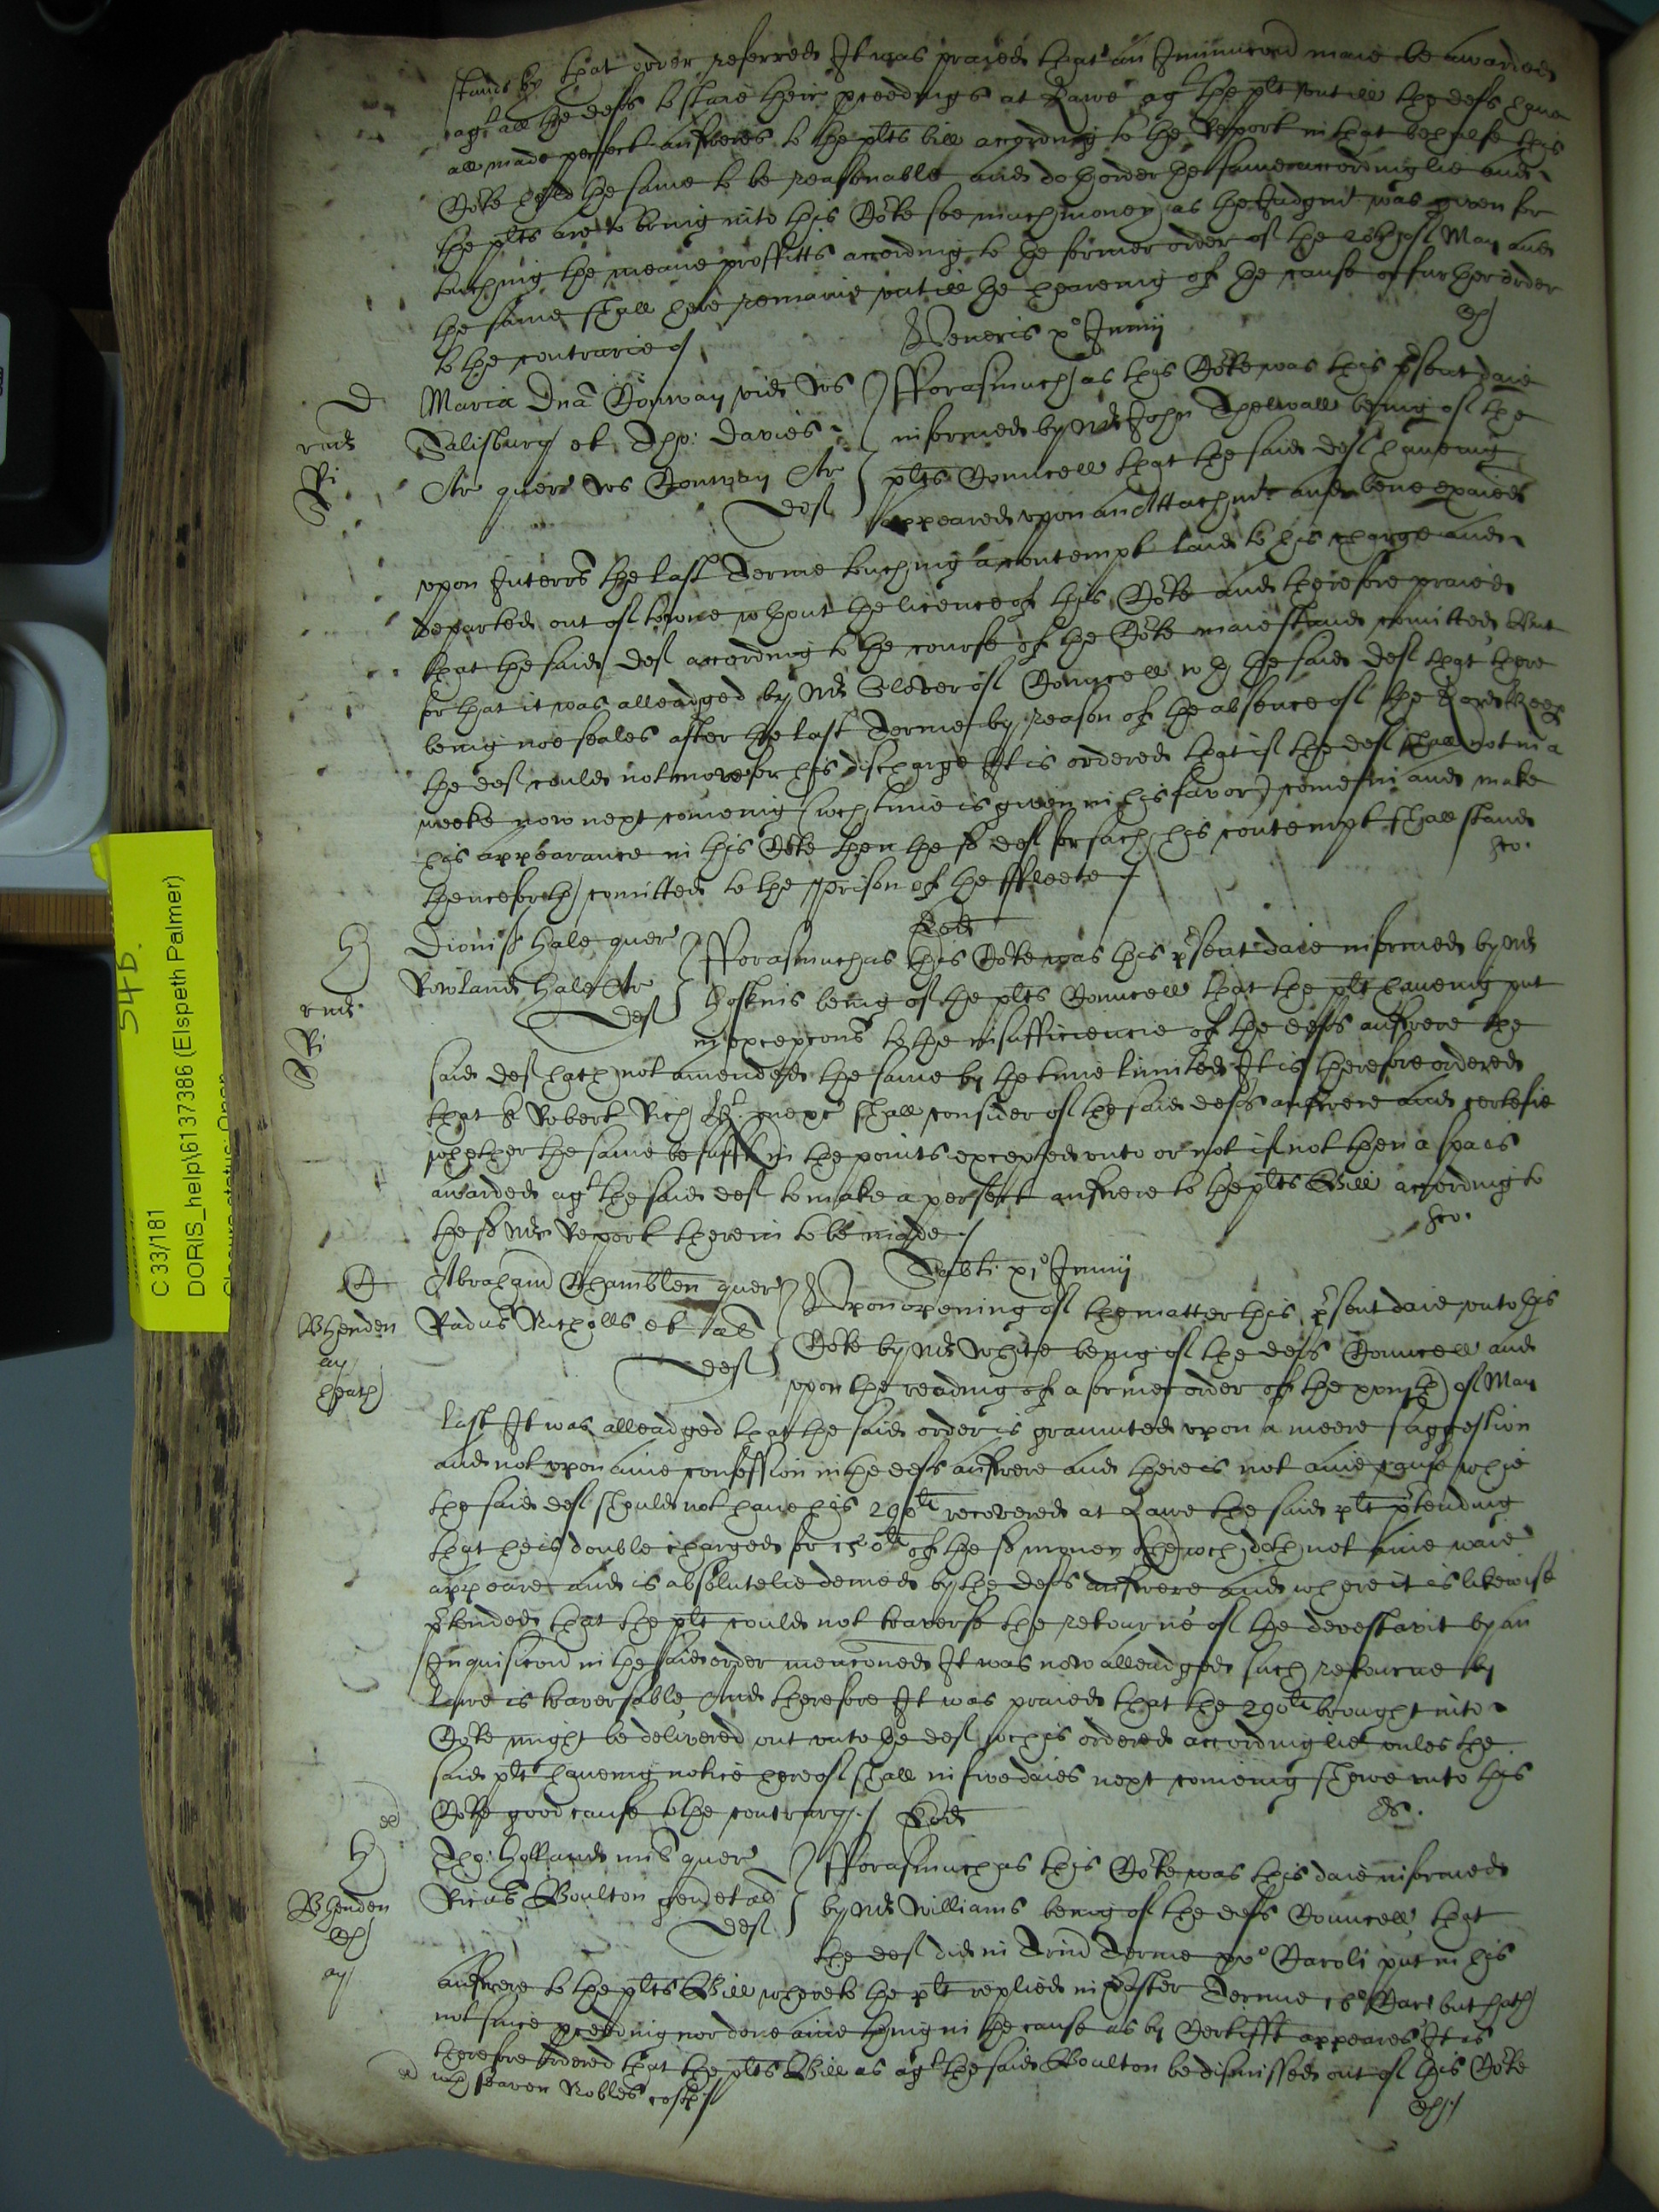 stands by that order referred It was praied that an Iniunccon maie be awarded
agt all the defts to staie their pceedings at Lawe agt the plt untill the defts have
all made perfect answeres to the plts bill according to the Report in that behalfe this
Co:te held the same to be reasonable and doth order the same accordinglie and
the plts are to bring into this Co:te soe much money as the Judgmt was given for
touching the meane proffitts according to the former order of the of May and
the same shall here remaine untill the hearing of the cause or further order
to the contrarie
Veneris xo Junij
Maria Dna Conway vid vs
Salisbury et Tho: Davies
Ar quer vs Conway Ar
deft
Forasmuch as this Co:te was this psent daie
informed by Mr John Thelwall being of the
plts Councell that the said deft haveing
appeared upon an Attachmt and bene exaied
upon Interrs the last Terme touching a contempt laid to his charge and
departed out of towne wthout the licence of this Co:te and therefore praied
that the said deft according to the course of the Co:te maie stand comitted But
for that it was alleadged by Mr Glover of Councell wth the said deft that there
being noe seales after the last Terme by reason of the absence of the Lord Keep
the deft could not move for his discharge It is ordered that if the deft shall not in a
weeke now next comeing (wch time is given in his favor) come in and make
his appearance in this Co:te then the sd deft for such his contempt shall stand
henceforth comitted to the prison of the ffleete
Eod
Dionis Hale quer
Rowland Hale Ar
deft
Forasmuch as this Co:te was this psent daie informed by Mr
Hoskins being of the plts Councell that the plt haveing put
in excepcons to the insufficiencie of the defts answere the
said deft hath not amended the same by the time limited It is therefore ordered
that Sr Robert Rich Kt shall consider of the said defts answere and certefie
whether the same be suffic in the points excepted unto or not if not then a spa is
awarded agt the said deft to make a perfect answere to the plts Bill according to
the sd Mr Report therein to be made
Sabti xjo Junij
Abraham Chamblen quer
Radus Nicholls et al
deft
Upon opening of the matter this psent daie unto this
Co:te by Mr White being of the defts Councell and
upon the reading of a former order of the of May
last It was alleadged that the said order is graunted upon a meere suggestion
and not upon anie confession in the defts answere and there is not anie cause whie
the said deft should not have his 290li recovered at Lawe the said plt ptending
that he is double charged for 150li of the sd money the wch doth not anie waie
appeare and is absolutelie denied by the defts answere and where it is likewise
ptended that the plt could not traverse the retourne of the devestavit by an
Inquisicon in the said order menconed It was now alleadged such retourne by
lawe is traversable And therefore It was praied that the 290li brought into
Co:te might be delivered out unto the deft wch is ordered accordinglie unles the
said plt haveing notice hereof shall in five daies next comeing shewe unto this
Co:te good cause to the contrary
Eod
Tho: Holland mil quer
Ricus Boulton gen et al
deft
Forasmuch as this Co:te was this daie informed
by Mr Williams being of the defts Councell that
the deft did in Trin Terme Caroli put in his
answere to the plts Bill whereto the plt replied in Easter Terme Car but hath
not since pceeding nor done anie thing in the cause as by Certifft appeares It is
therefore ordered that the plts Bill as agt the said Boulton be dismissed out of this Co:te
wth seaven Nobles costs
C 33/181
DORIS_help\6137386 (Elspeth Palmer)